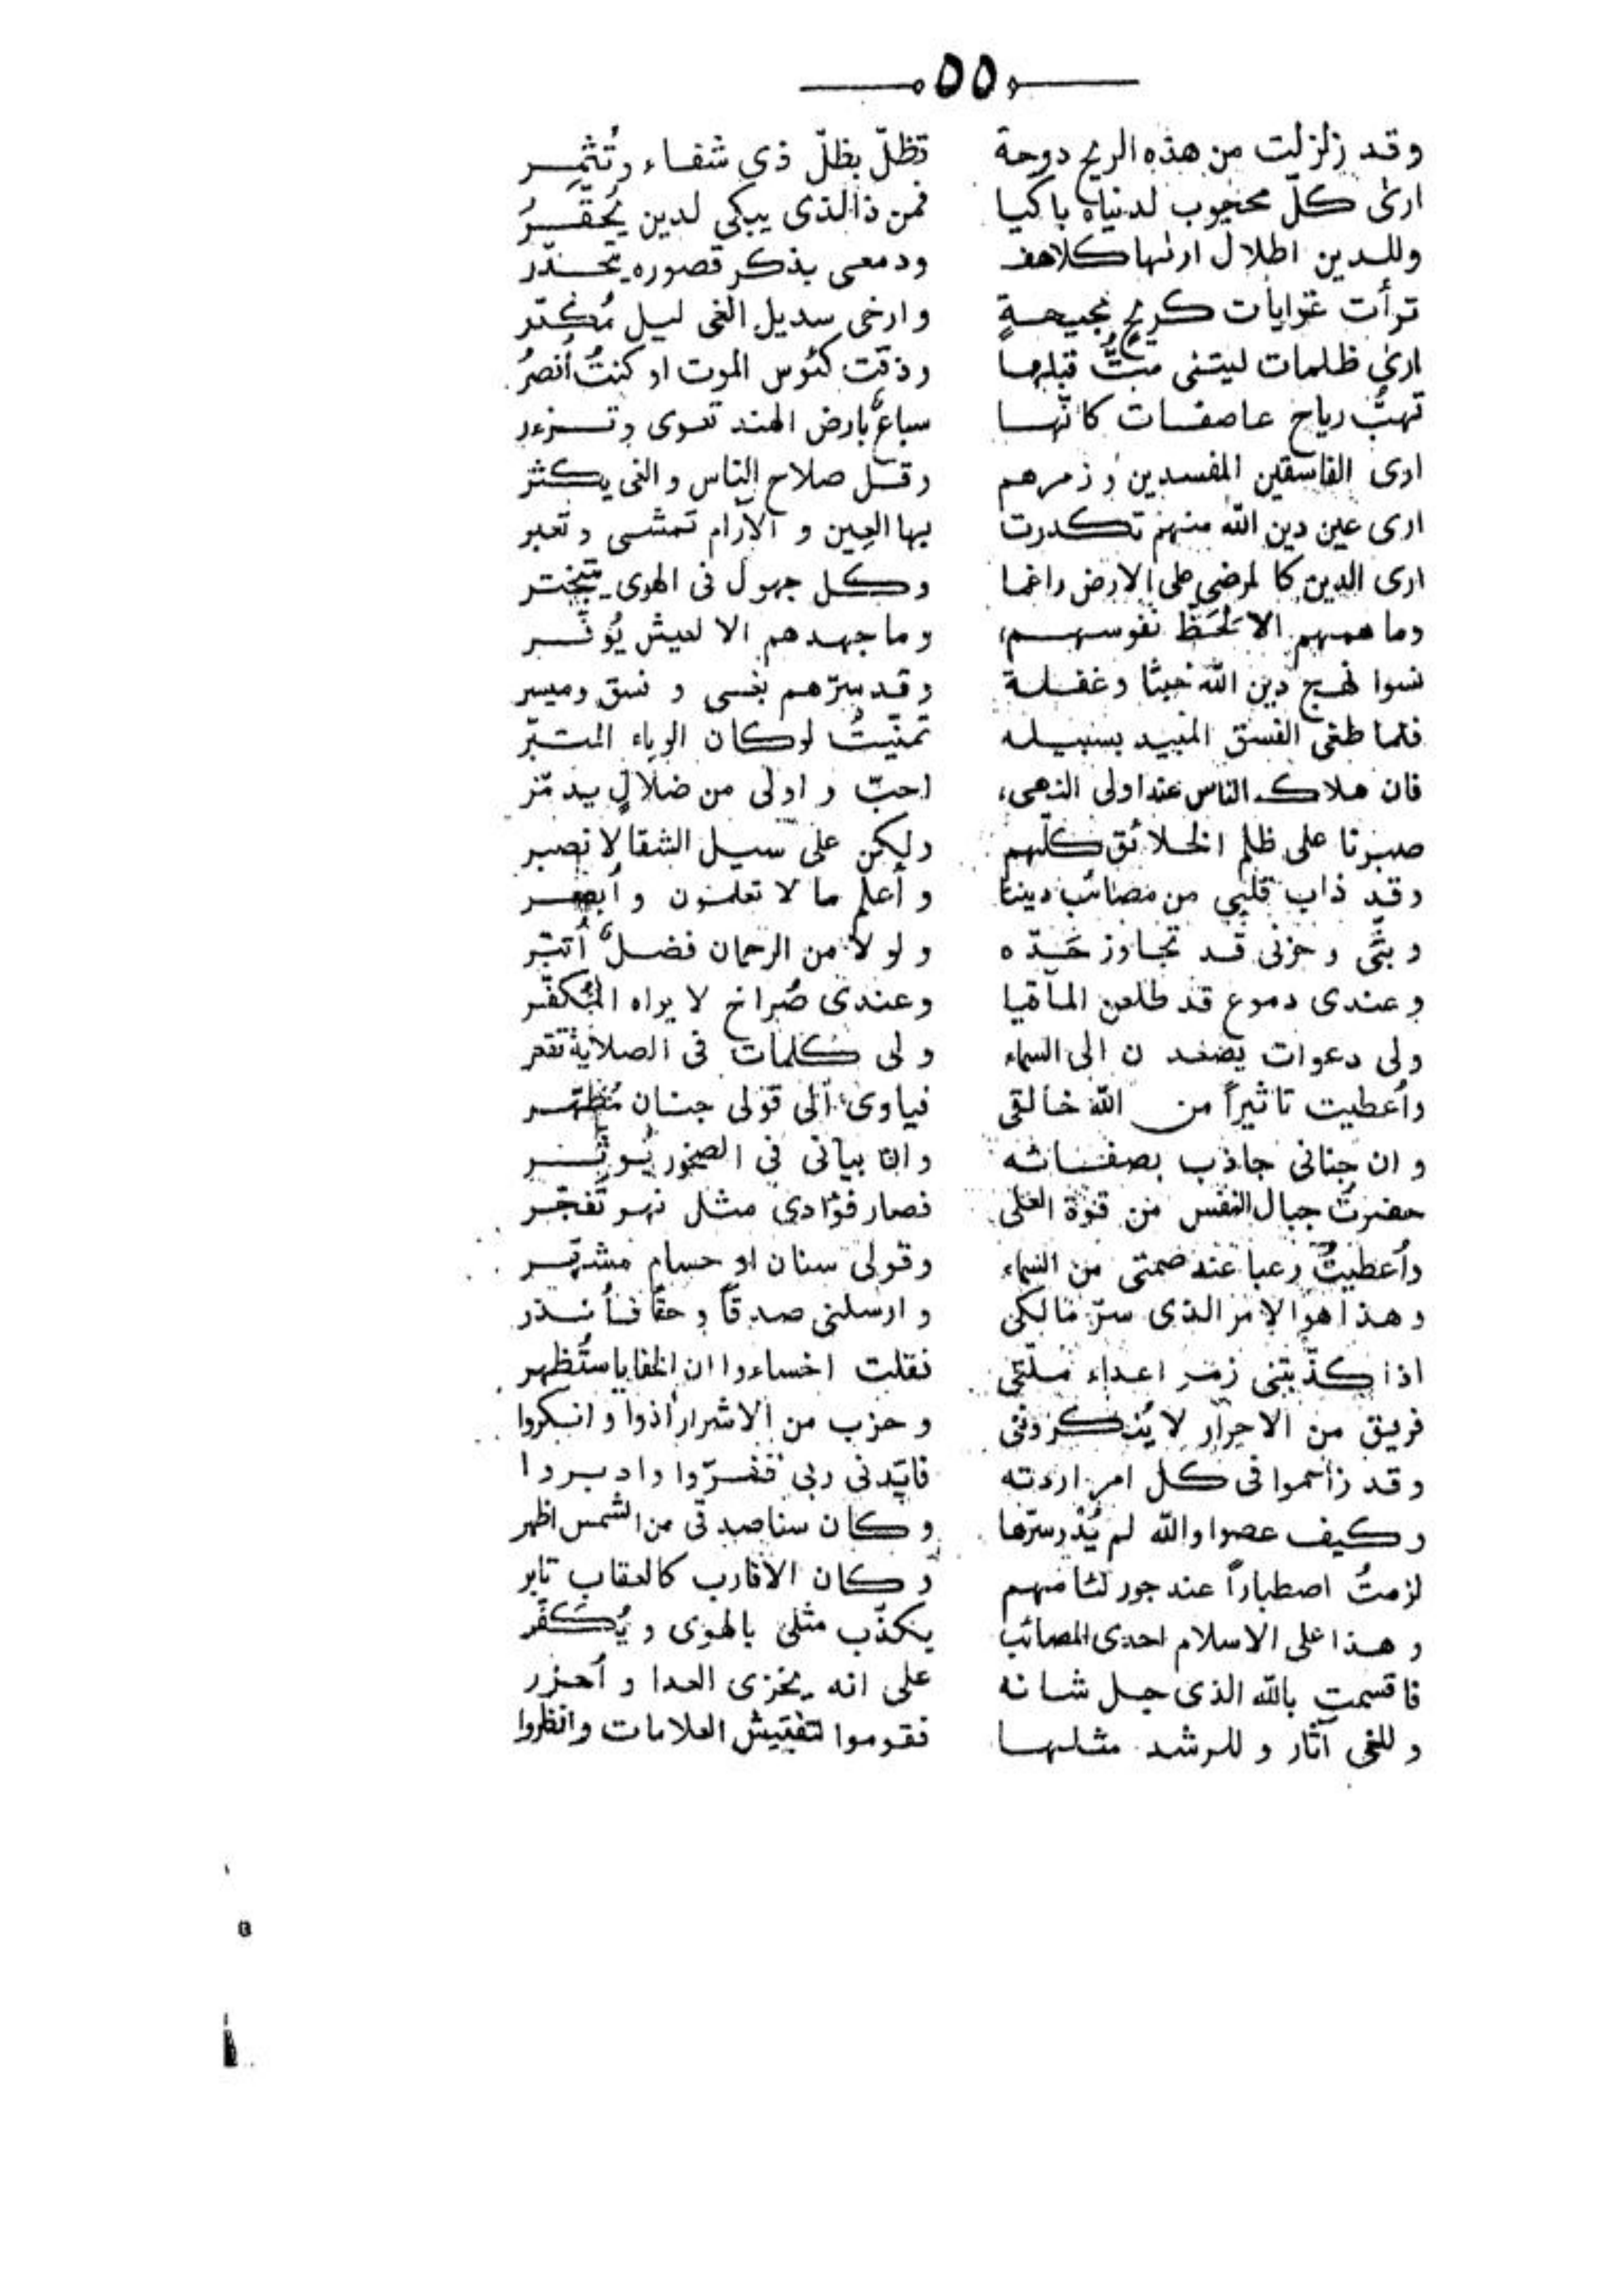 ٥٥
وقد زلزلت من هذه الريح دوحة تظلّ بظلّ ذى شفاء وتُثمِر
ارىٰ كلّ محجوب لدنياه باكيا فمن ذا الذى يبكى لدين يُحقَّرُ
وللدين اطلال اراها كلاهف ودمعى بذكر قصوره يتحدّر
ترأت غوايات كريحٍ مجيحةٍ وارخى سديل الغى ليل مُكدّر
ارىٰ ظلمات ليتنى متُّ قبلها وذقت كئوس الموت او كنتُ اُنصرُ
تهبُّ رياح عاصفات كانّها سباعٌ بارض الهند تعوى وتزءر
ارى الفاسقين المفسدين وزمرهم وقلّ صلاح الناس والغى يكثر
ارى عين دين الله منهم تكدرت بها العِين والآرام تمشى وتعبر
ارى الدين كالمرضى على الارض راغما وكل جهول فى الهوى يتبختر
وما همهم الا لحَظّ نفوسهم، وما جهدهم الا لعيش يُوفَّر
نسوا نهج دين الله خبثًا وغفلة وقد سرّهم بغى وفسق وميسر
فلما طغى الفسق المبيد بسيله تمنّيتُ لو كان الوباء المتبّر
فان هلاك الناس عند اولى النهى، احبّ واولى من ضلالٍ يدمّر
صبرنا على ظلم الخلائق كلّهم ولكن على سيل الشقا لا نصبر
وقد ذاب قلبى من مصائب ديننا وأعلم ما لا تعلمون وأُبصر
وبثّى وحزنى قد تجاوز حَدّه ولو لا من الرحمان فضلٌ اُتبّر
وعندى دموع قد طلعن المآقيا وعندى صُراخ لا يراه المُكفّر
ولى دعوات يصعدن الى السماء ولى كلمات فى الصلاية تقعر
واُعطيت تاثيراً من الله خالقى فياوى الى قولى جنان مُطهّر
وان جنانى جاذب بصفاته وان بيانى فى الصخور يُوثّر
حفرتُ جبال النفس من قوّة العلى فصار فؤادى مثل نهر تُفجّر
واُعطيتُ رعبا عند صمتى من السماء وقولى سنان او حسام مشهّر
وهذا هو الامر الذى سرّ مالكى وارسلنى صدقاً وحقّاً فأُنذر
اذا كذّبتنى زمر اعداء ملّتى فقلت اخساءوا ان الخفايا ستُظهر
فريق من الاحرار لا يُنكروننى وحزب من الاشرار اٰذوا وانكروا
وقد زاحموا فى كل امر اردته فايّدنى ربى ففرّوا وادبروا
وكيف عصوا والله لم يُدْر سرّها وكان سنا صدقى من الشمس اظهر
لزمتُ اصطباراً عند جور لئامهم وكان الاقارب كالعقاب تابر
وهذا على الاسلام احدى المصائب يكذّب مثلى بالهوى ويُكَفَّر
فاقسمت بالله الذى جل شانه على انه يخزى العدا وأُعزر
وللغى آثار وللرشد مثلها فقوموا لتفتيش العلامات وانظروا